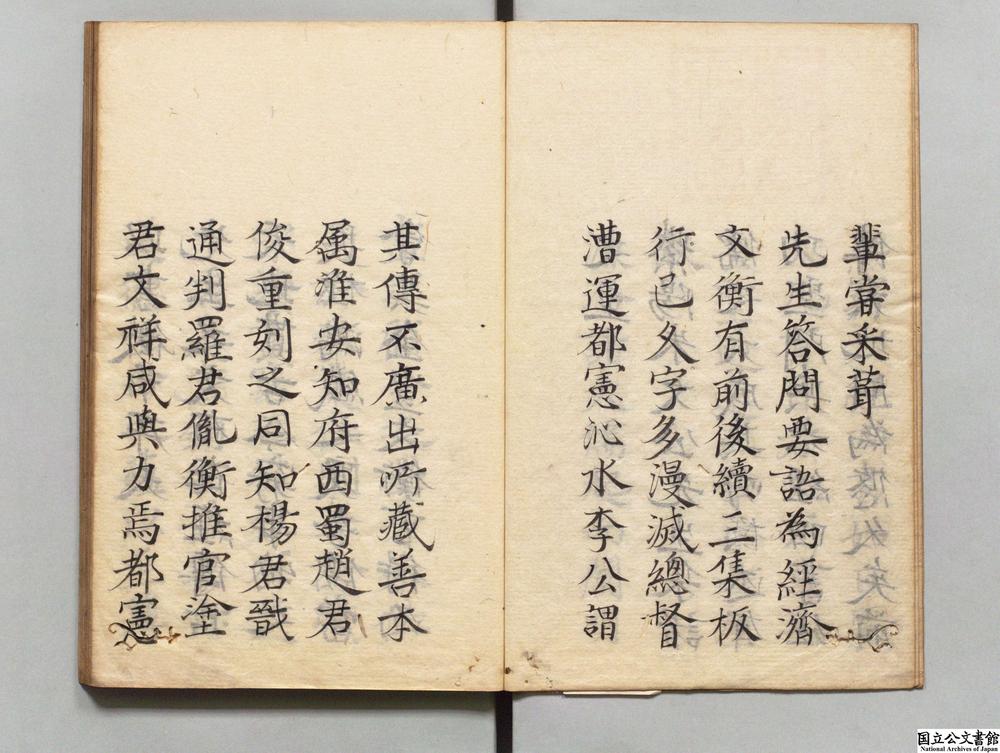 輩嘗采葺
先生答問要語為經濟
文衡有前後續三集板
行已久字多漫滅總督
漕運都憲沁水李公謂
其傳不廣出所藏善本
属淮安知府西蜀趙君
俊重刻之同知楊君戩
通判羅君胤衡推官塗
君文祥咸與力焉都憲
国立公文書館
National Archives of Japan